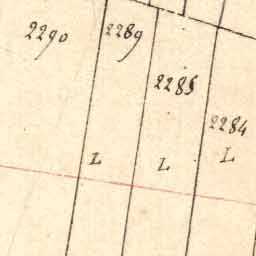 2290
2289
2285
2284
L
L
L